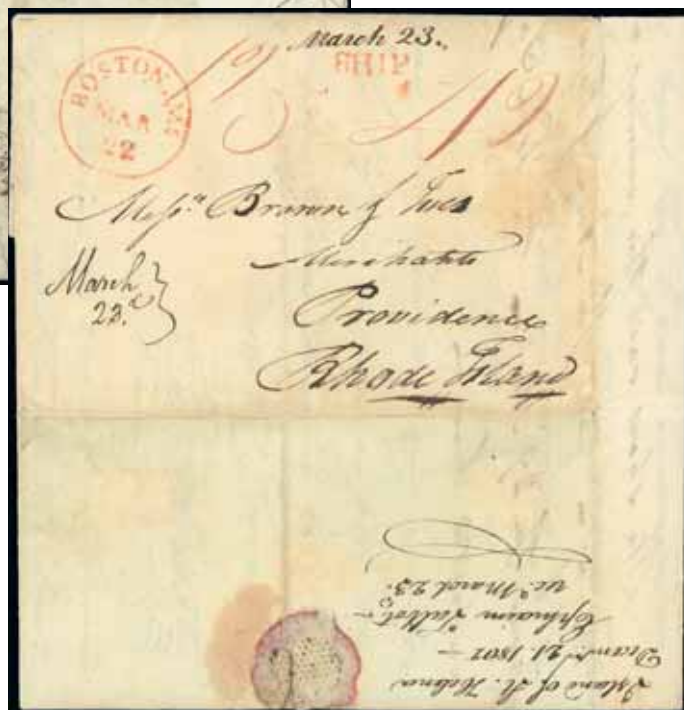 March 23.
BOSTON. MS
MAR
22
SHIP
Mess.rs Brown & Ives
Merchants
Providence
Rhode Island
March
23.d
Island of St. Helena
Decem.r 21 1801
Ephraim Talbot
rec.d March 23.